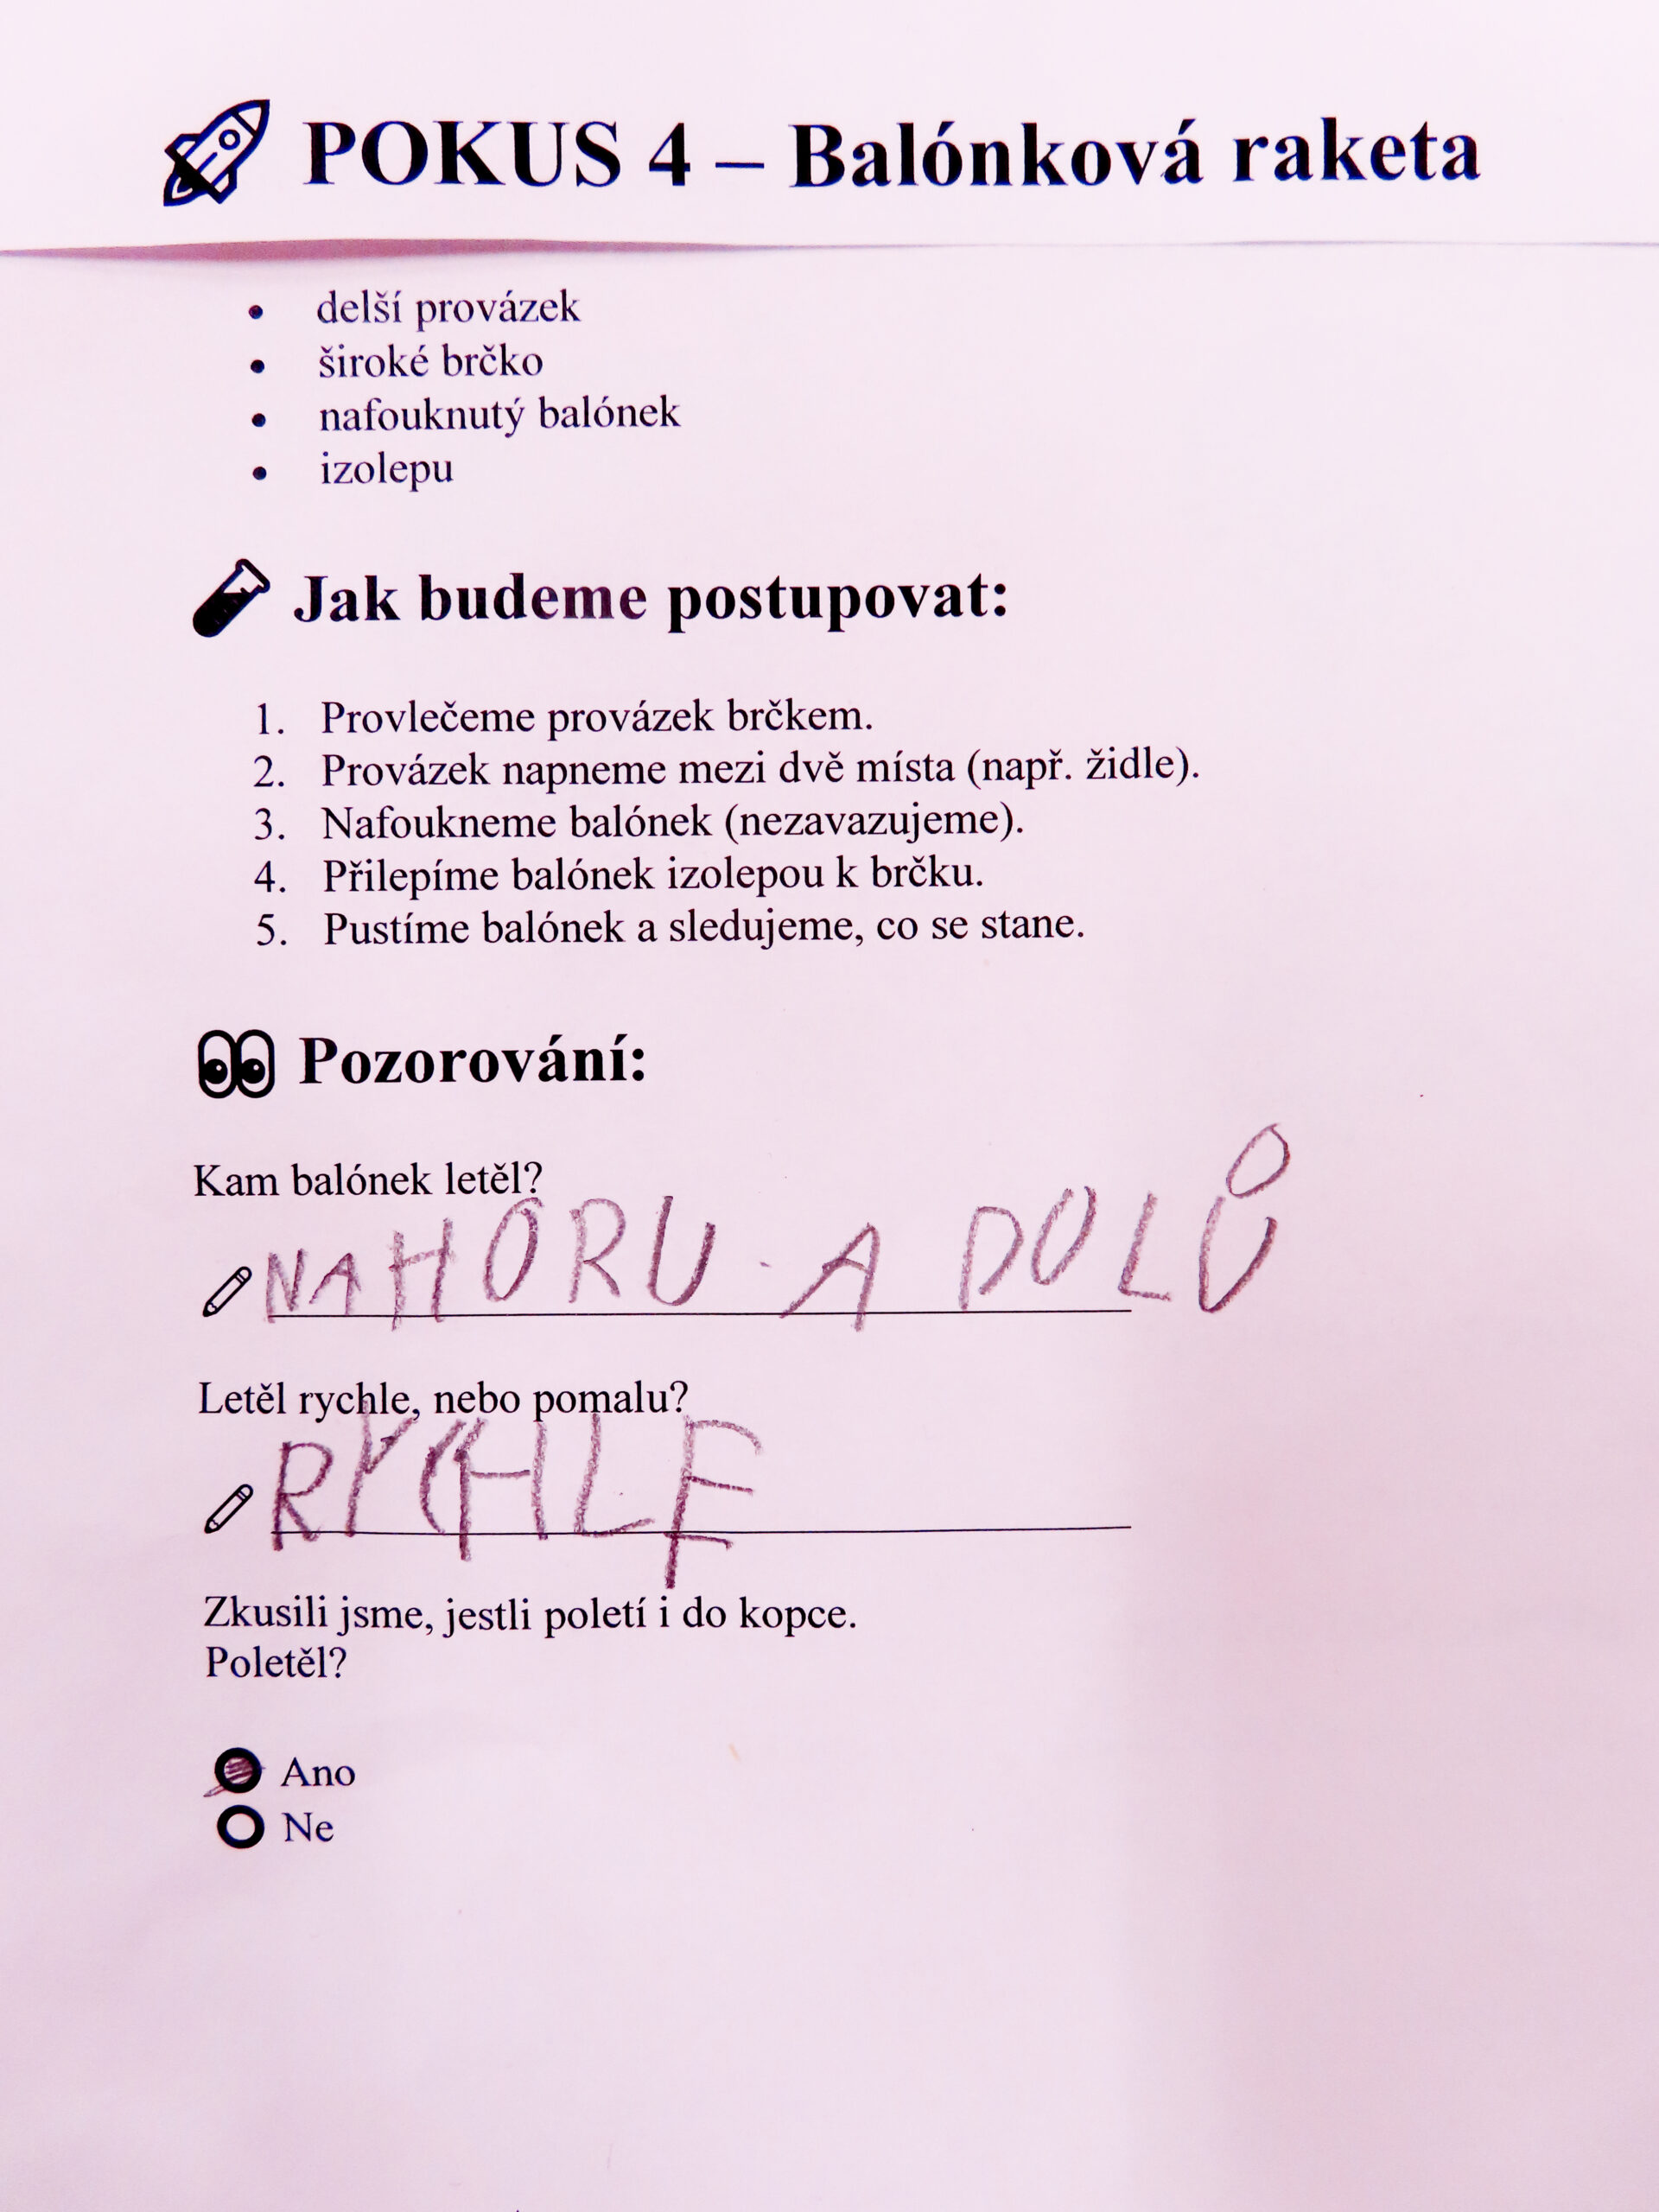 POKUS 4 – Balónková raketa
• delší provázek
• široké brčko
• nafouknutý balónek
• izolepu
Jak budeme postupovat:
1. Provlečeme provázek brčkem.
2. Provázek napneme mezi dvě místa (např. židle).
3. Nafoukneme balónek (nezavazujeme).
4. Přilepíme balónek izolepou k brčku.
5. Pustíme balónek a sledujeme, co se stane.
Pozorování:
Kam balónek letěl?
NAHORU A DOLŮ
Letěl rychle, nebo pomalu?
RYCHLE
Zkusili jsme, jestli poletí i do kopce.
Poletěl?
Ano
Ne